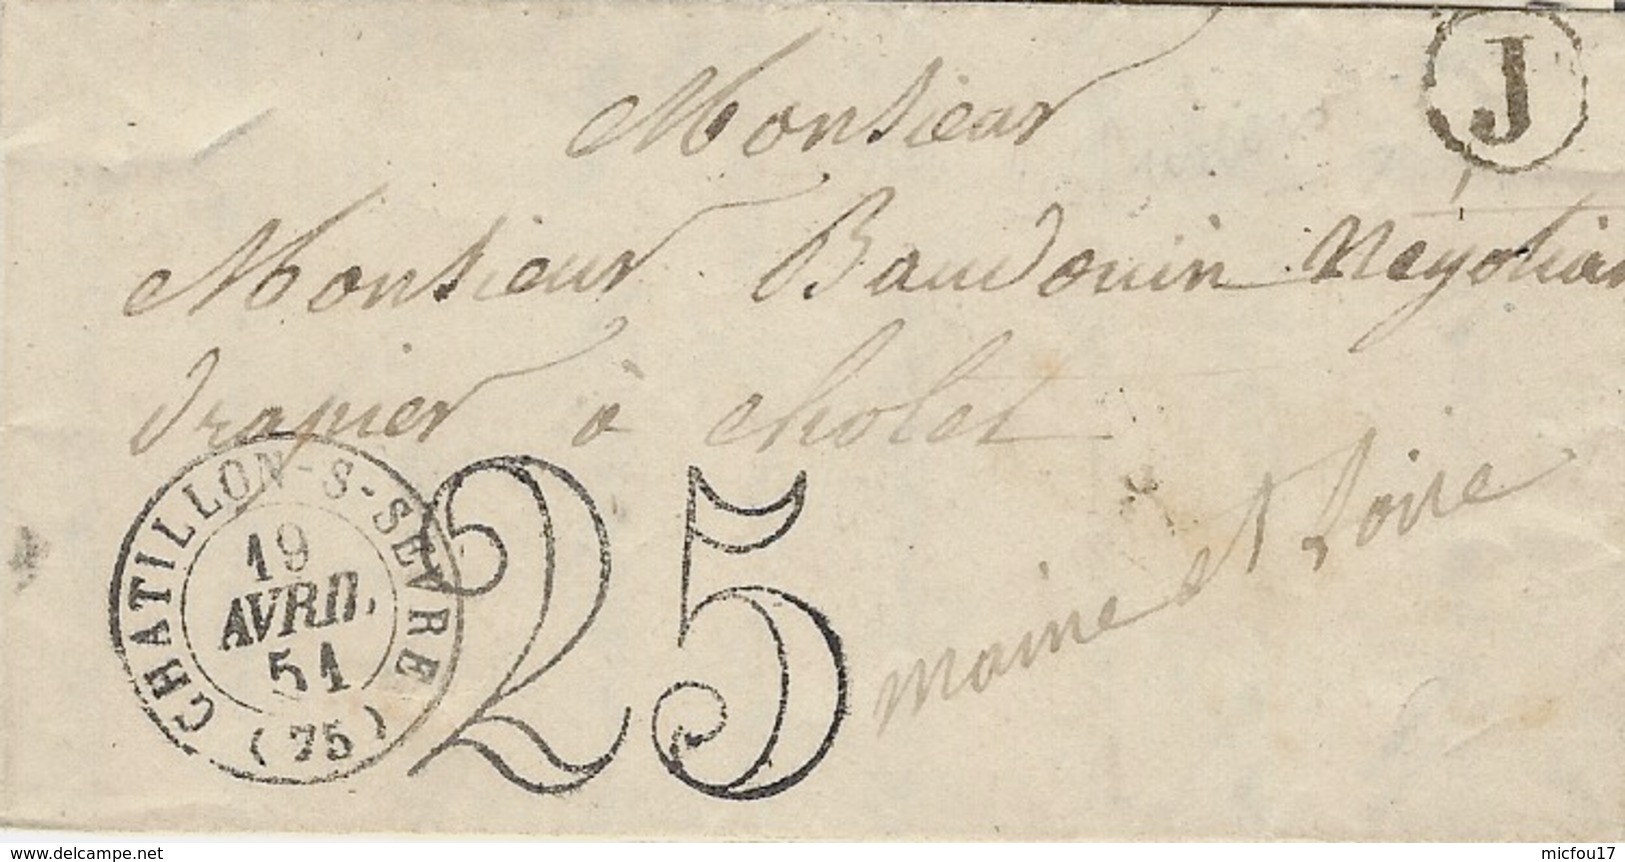 J
Monsieur
Monsieur Baudouin Negotian
drapier à cholet
maine et Loire
CHATILLON-S-SEVRE
19
AVRIL
51
(75)
25
www.delcampe.net
micfou17